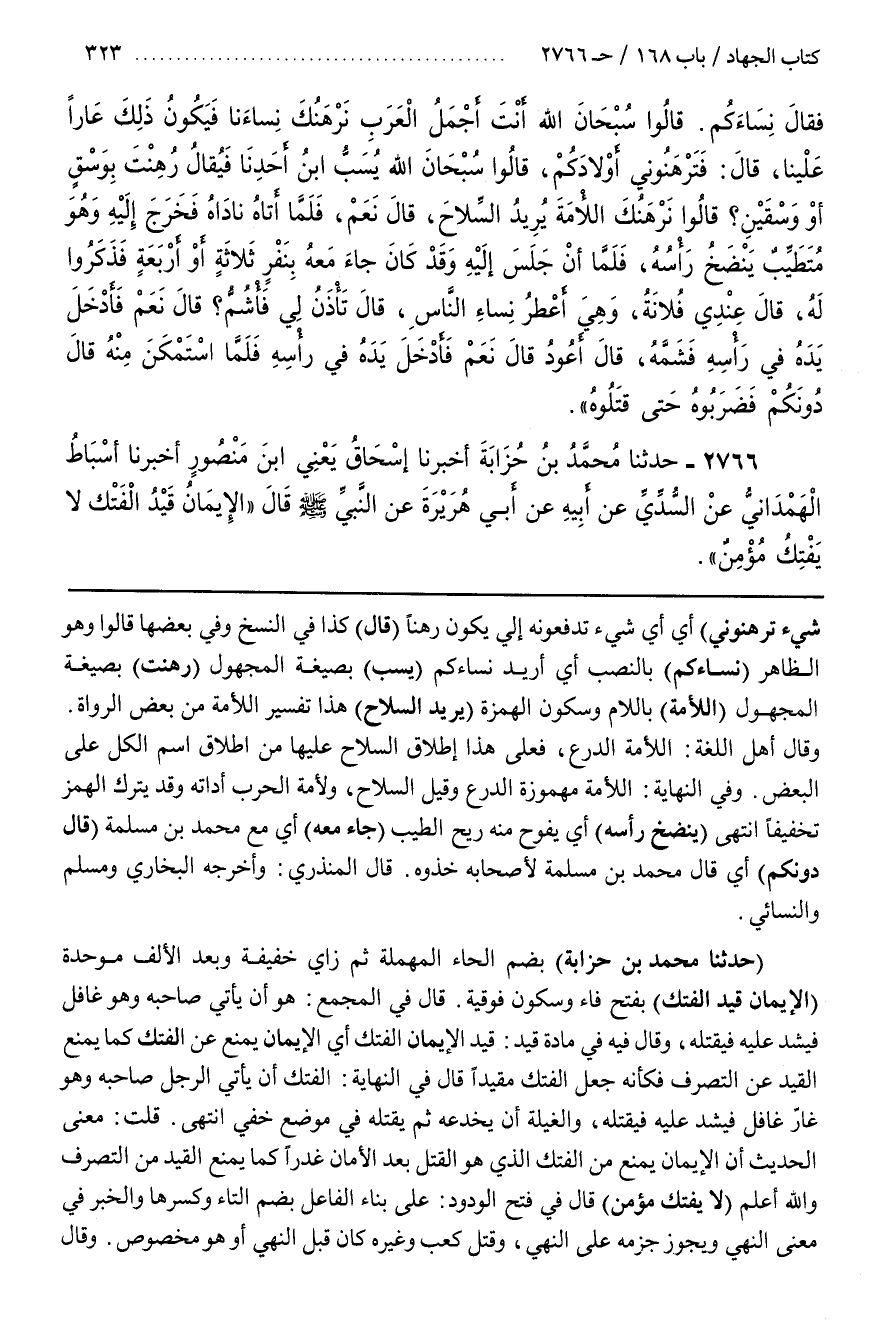 كتاب الجهاد / باب ١٦٨ / حـ ٢٧٦٦ ............................................. ٣٢٣
فقالَ نِسَاءَكُم. قالُوا سُبْحَانَ الله أنْتَ أجْمَلُ الْعَرَبِ نَرْهَنُكَ نِساءَنا فَيَكُونُ ذَلِكَ عَاراً
عَلَيْنا، قالَ: فَتَرْهَنُوني أوْلادَكُمْ، قالُوا سُبْحَانَ الله يُسَبُّ ابنُ أحَدِنَا فَيُقالُ رُهِنْتَ بِوَسْقٍ
أوْ وَسْقَيْنِ؟ قالُوا نَرْهَنُكَ اللأْمَةَ يُرِيدُ السِّلاحَ، قالَ نَعَمْ، فَلَمَّا أتاهُ نادَاهُ فَخَرَجَ إلَيْهِ وَهُوَ
مُتَطَيِّبٌ يَنْضَخُ رَأْسُهُ، فَلَمَّا أنْ جَلَسَ إلَيْهِ وَقَدْ كَانَ جاءَ مَعهُ بِنَفْرٍ ثَلاثَةٍ أوْ أرْبَعَةٍ فَذَكَرُوا
لَهُ، قالَ عِنْدِي فُلانَةُ، وَهِيَ أعْطرُ نِساءِ النَّاسِ، قالَ تَأْذَنُ لِي فَأْشُمُّ؟ قالَ نَعَمْ فَأَدْخَلَ
يَدَهُ في رَأْسِهِ فَشَمَّهُ، قالَ أعُودُ قالَ نَعَمْ فَأَدْخَلَ يَدَهُ في رأْسِهِ فَلَمَّا اسْتَمْكَنَ مِنْهُ قالَ
دُونَكُمْ فَضَرَبُوهُ حَتى قتَلُوهُ».
٢٧٦٦ ـ حدثنا مُحمَّدُ بنُ حُزَابَةَ أخبرنا إسْحَاقُ يَعْنِي ابنَ مَنْصُورٍ أخبرنا أسْبَاطُ
الْهَمْدَانيُّ عنْ السُّدِّيِّ عن أبِيهِ عن أبـي هُرَيْرَةَ عن النَّبيِّ ﷺ قَالَ «الإِيمَانُ قَيْدُ الْفَتْك لا
يَفْتِكُ مُؤْمِنٌ».
شيء ترهنوني) أي أي شيء تدفعونه إلي يكون رهناً (قال) كذا في النسخ وفي بعضها قالوا وهو
الـظاهر (نسـاءكم) بالنصب أي أريـد نساءكم (يسب) بصيغـة المجهول (رهنت) بصيغـة
المجهـول (اللأمة) باللام وسكون الهمزة (يريد السلاح) هذا تفسير اللأمة من بعض الرواة.
وقال أهل اللغة: اللأمة الدرع، فعلى هذا إطلاق السلاح عليها من اطلاق اسم الكل على
البعض. وفي النهاية: اللأمة مهموزة الدرع وقيل السلاح، ولأمة الحرب أداته وقد يترك الهمز
تخفيفاً انتهى (ينضخ رأسه) أي يفوح منه ريح الطيب (جاء معه) أي مع محمد بن مسلمة (قال
دونكم) أي قال محمد بن مسلمة لأصحابه خذوه. قال المنذري: وأخرجه البخاري ومسلم
والنسائي.
(حدثنا محمد بن حزابة) بضم الحاء المهملة ثم زاي خفيفـة وبعد الألف مـوحدة
(الإيمان قيد الفتك) بفتح فاء وسكون فوقية. قال في المجمع: هو أن يأتي صاحبه وهو غافل
فيشد عليه فيقتله، وقال فيه في مادة قيد: قيد الإيمان الفتك أي الإيمان يمنع عن الفتك كما يمنع
القيد عن التصرف فكأنه جعل الفتك مقيداً قال في النهاية: الفتك أن يأتي الرجل صاحبه وهو
غارّ غافل فيشد عليه فيقتله، والغيلة أن يخدعه ثم يقتله في موضع خفي انتهى. قلت: معنى
الحديث أن الإيمان يمنع من الفتك الذي هو القتل بعد الأمان غدراً كما يمنع القيد من التصرف
والله أعلم (لا يفتك مؤمن) قال في فتح الودود: على بناء الفاعل بضم التاء وكسرها والخبر في
معنى النهي ويجوز جزمه على النهي، وقتل كعب وغيره كان قبل النهي أو هو مخصوص. وقال